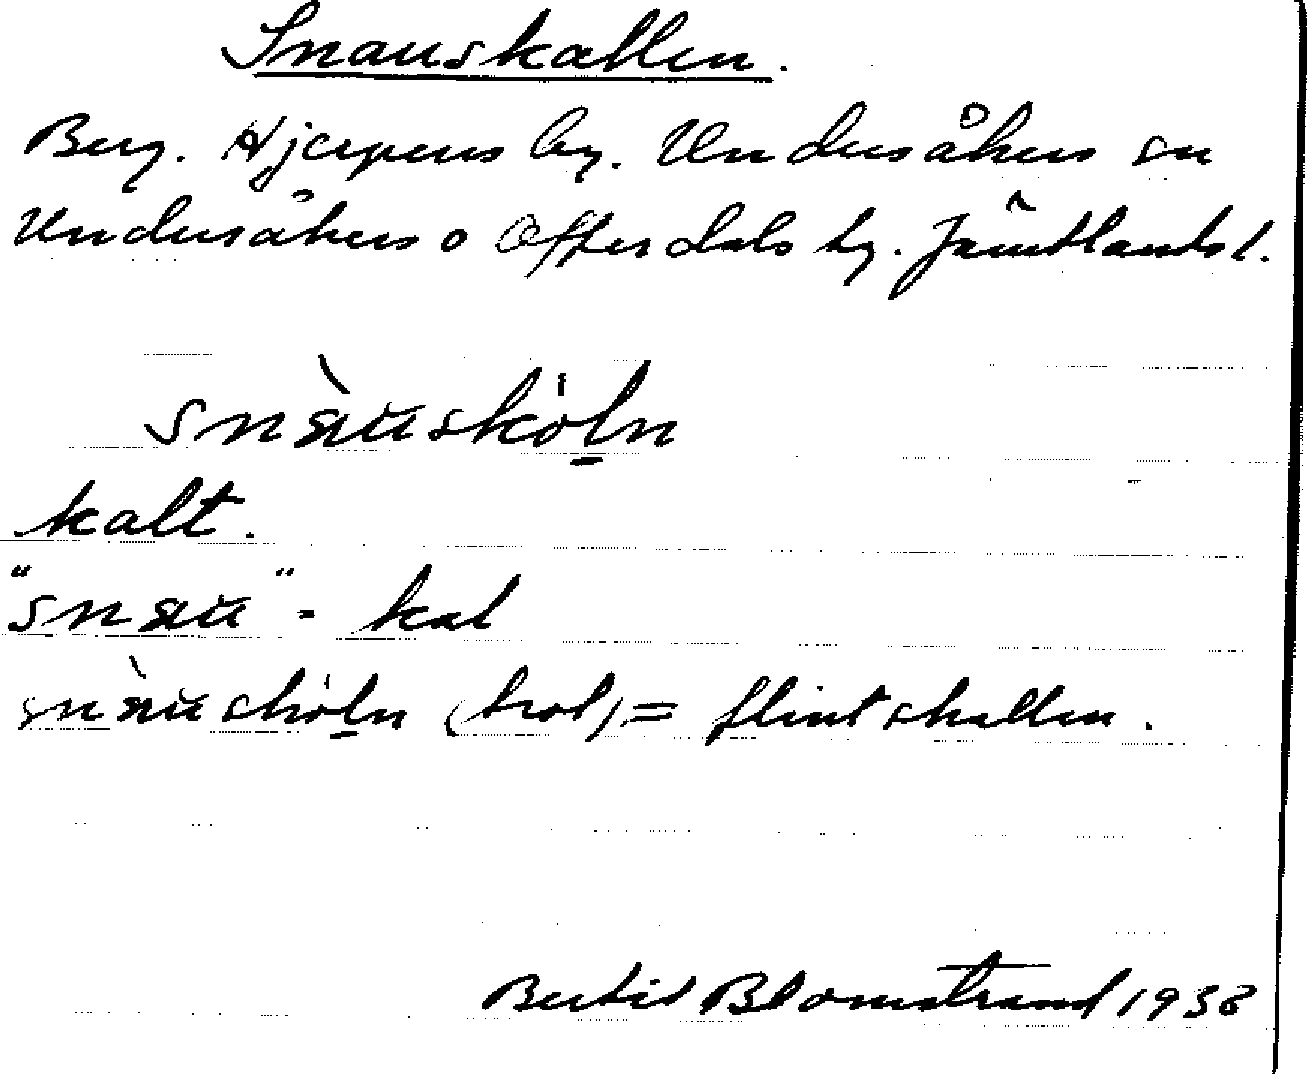 Snauskallen.
Berg. Hjerpens by. Undersåkers sn
Undersåkers o Offerdals tg. Jämtlands l.
snæ̀u̇skȯl̲n
kalt.
"snæu" - kal
snæ̀uskȯl̲n = flintskallen.
Bertil Blomstrand 1938